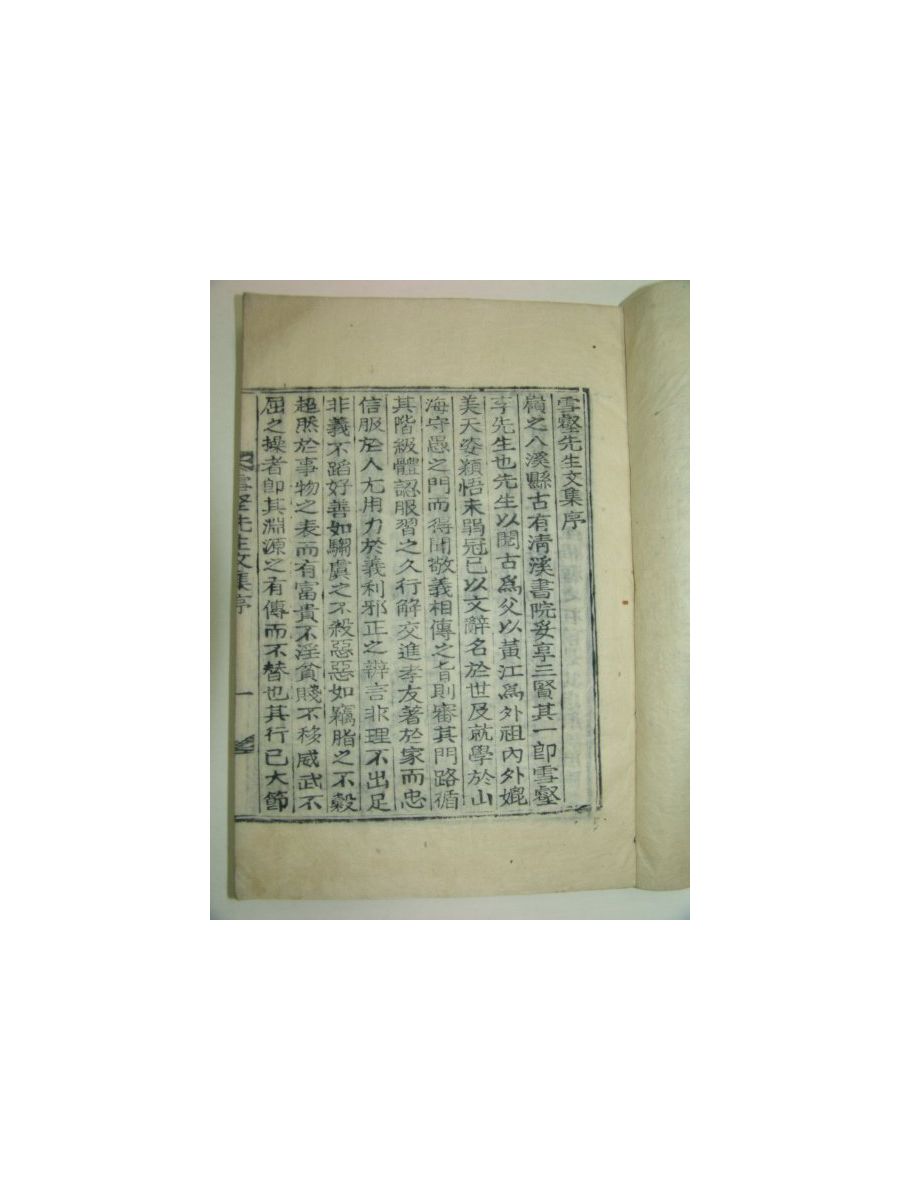 雪壑先生文集序
嶺之八溪縣古有淸溪書院妥享三賢其一卽雪壑
李先生也先生以閱古爲父以黃江爲外祖內外媲
美天姿穎悟未弱冠已以文辭名於世及就學於山
海守愚之門而得聞敬義相傳之旨則審其門路循
其階級體認服習之久行解交進孝友著於家而忠
信服於人尤用力於義利邪正之辨言非理不出足
非義不蹈好善如騶虞之不殺惡惡如竊脂之不穀
超然於事物之表而有富貴不淫貧賤不移威武不
屈之操者卽其淵源之有傳而不替也其行已大節
雪壑先生文集序 一